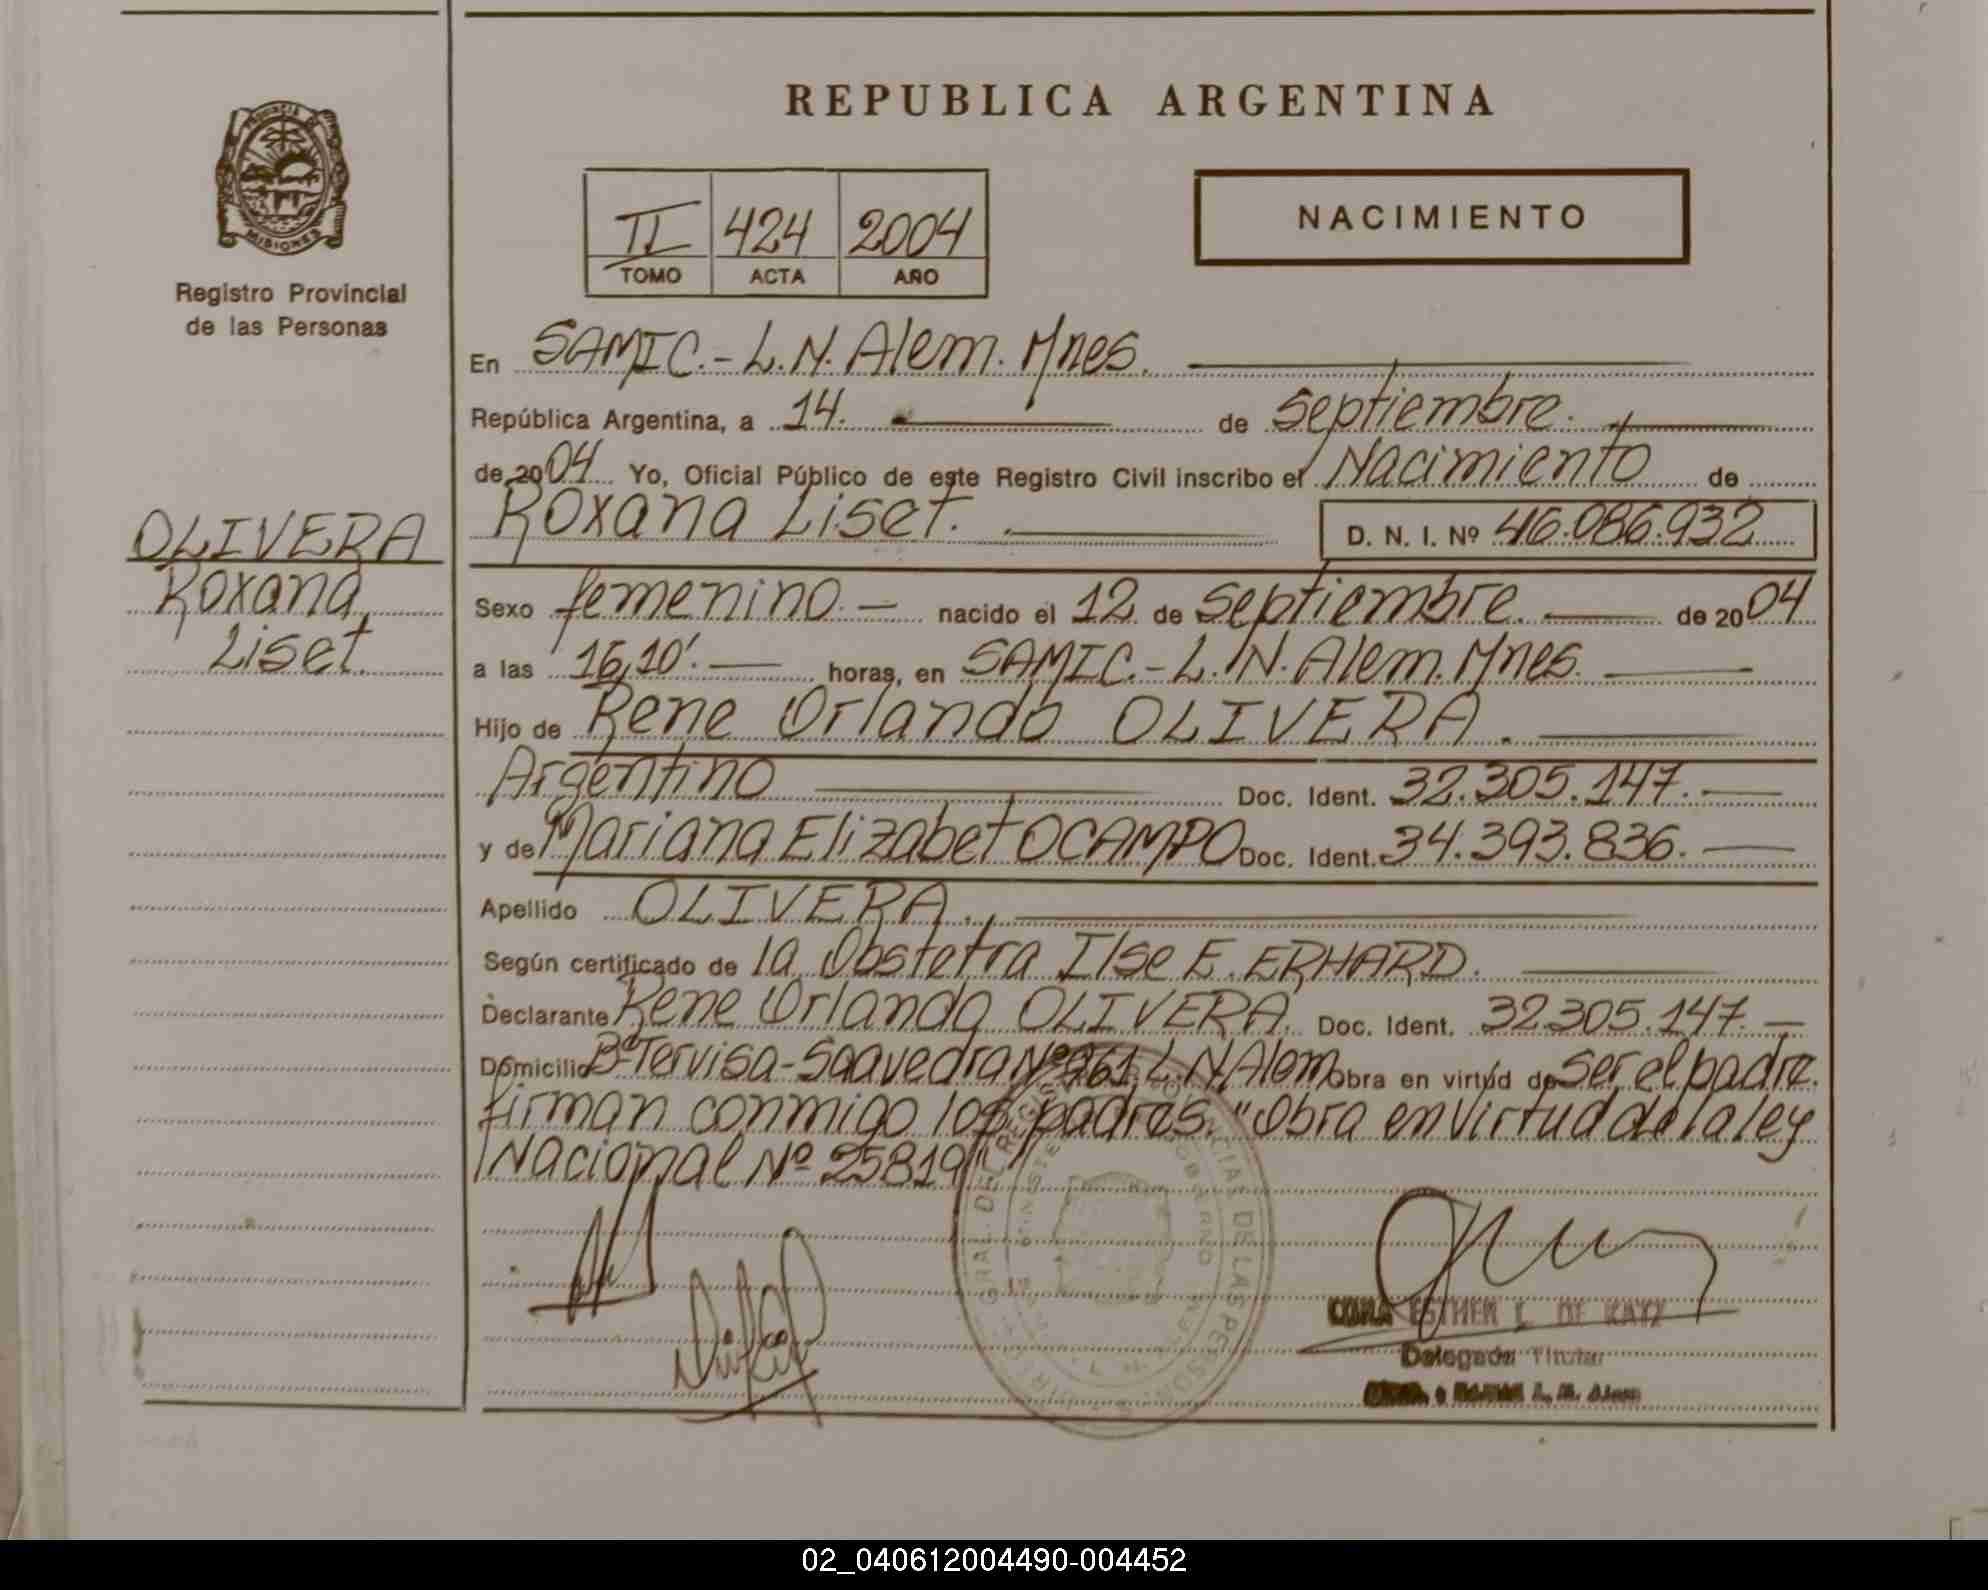 REPUBLICA ARGENTINA
PROVINCIA DE
MISIONES
Registro Provincial
de las Personas
II 424 2004
TOMO ACTA AÑO
NACIMIENTO
En SAMIC.- L.N. Alem. Mnes.
República Argentina, a 14. de Septiembre.
de 2004 Yo, Oficial Público de este Registro Civil inscribo el Nacimiento de
Roxana Liset. D. N. I. Nº 46.086.932
OLIVERA
Roxana
Liset.
Sexo femenino. nacido el 12 de Septiembre. de 2004
a las 16,10'. horas, en SAMIC.- L.N. Alem. Mnes.
Hijo de Rene Orlando OLIVERA.
Argentino Doc. Ident. 32.305.147.
y de Mariana Elizabet OCAMPO Doc. Ident. 34.393.836.
Apellido OLIVERA.
Según certificado de la Obstetra Ilse E. ERHARD.
Declarante Rene Orlando OLIVERA. Doc. Ident. 32.305.147.
Domicilio Bº Tervisa-Saavedra Nº 261, L.N. Alem Obra en virtud de ser el padre.
firman conmigo los padres. "Obra en virtud de la ley
Nacional Nº 25819"
ESTHER L. DE
Delegada Titular
L. N. Alem
02_040612004490-004452